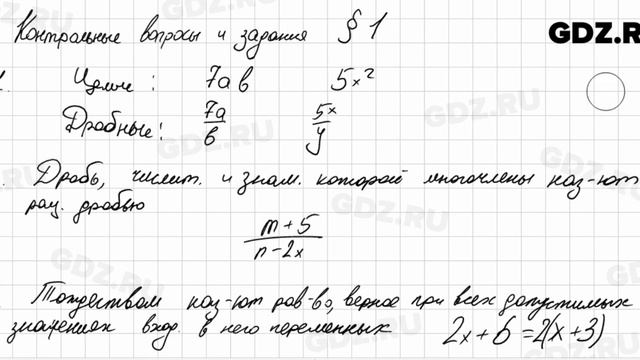 Контрольные вопросы и задания § 1
GDZ.RU
1. Целые: 7ав 5x²
Дробные: 7а/в 5x/y
Дробь, числит. и знам. которой многочлены наз-ют
рац. дробью
m+5/n-2x
Тождеством наз-ют рав-во, верное при всех допустимых
значениях вход. в него переменных 2x+6=2(x+3)